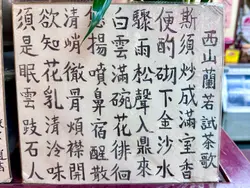 西山蘭若試茶歌
斯須炒成滿室香
便酌砌下金沙水
驟雨松聲入鼎來
白雲滿碗花徘徊
悠揚噴鼻宿酲散
清峭徹骨煩襟開
欲知花乳清泠味
須是眠雲跂石人